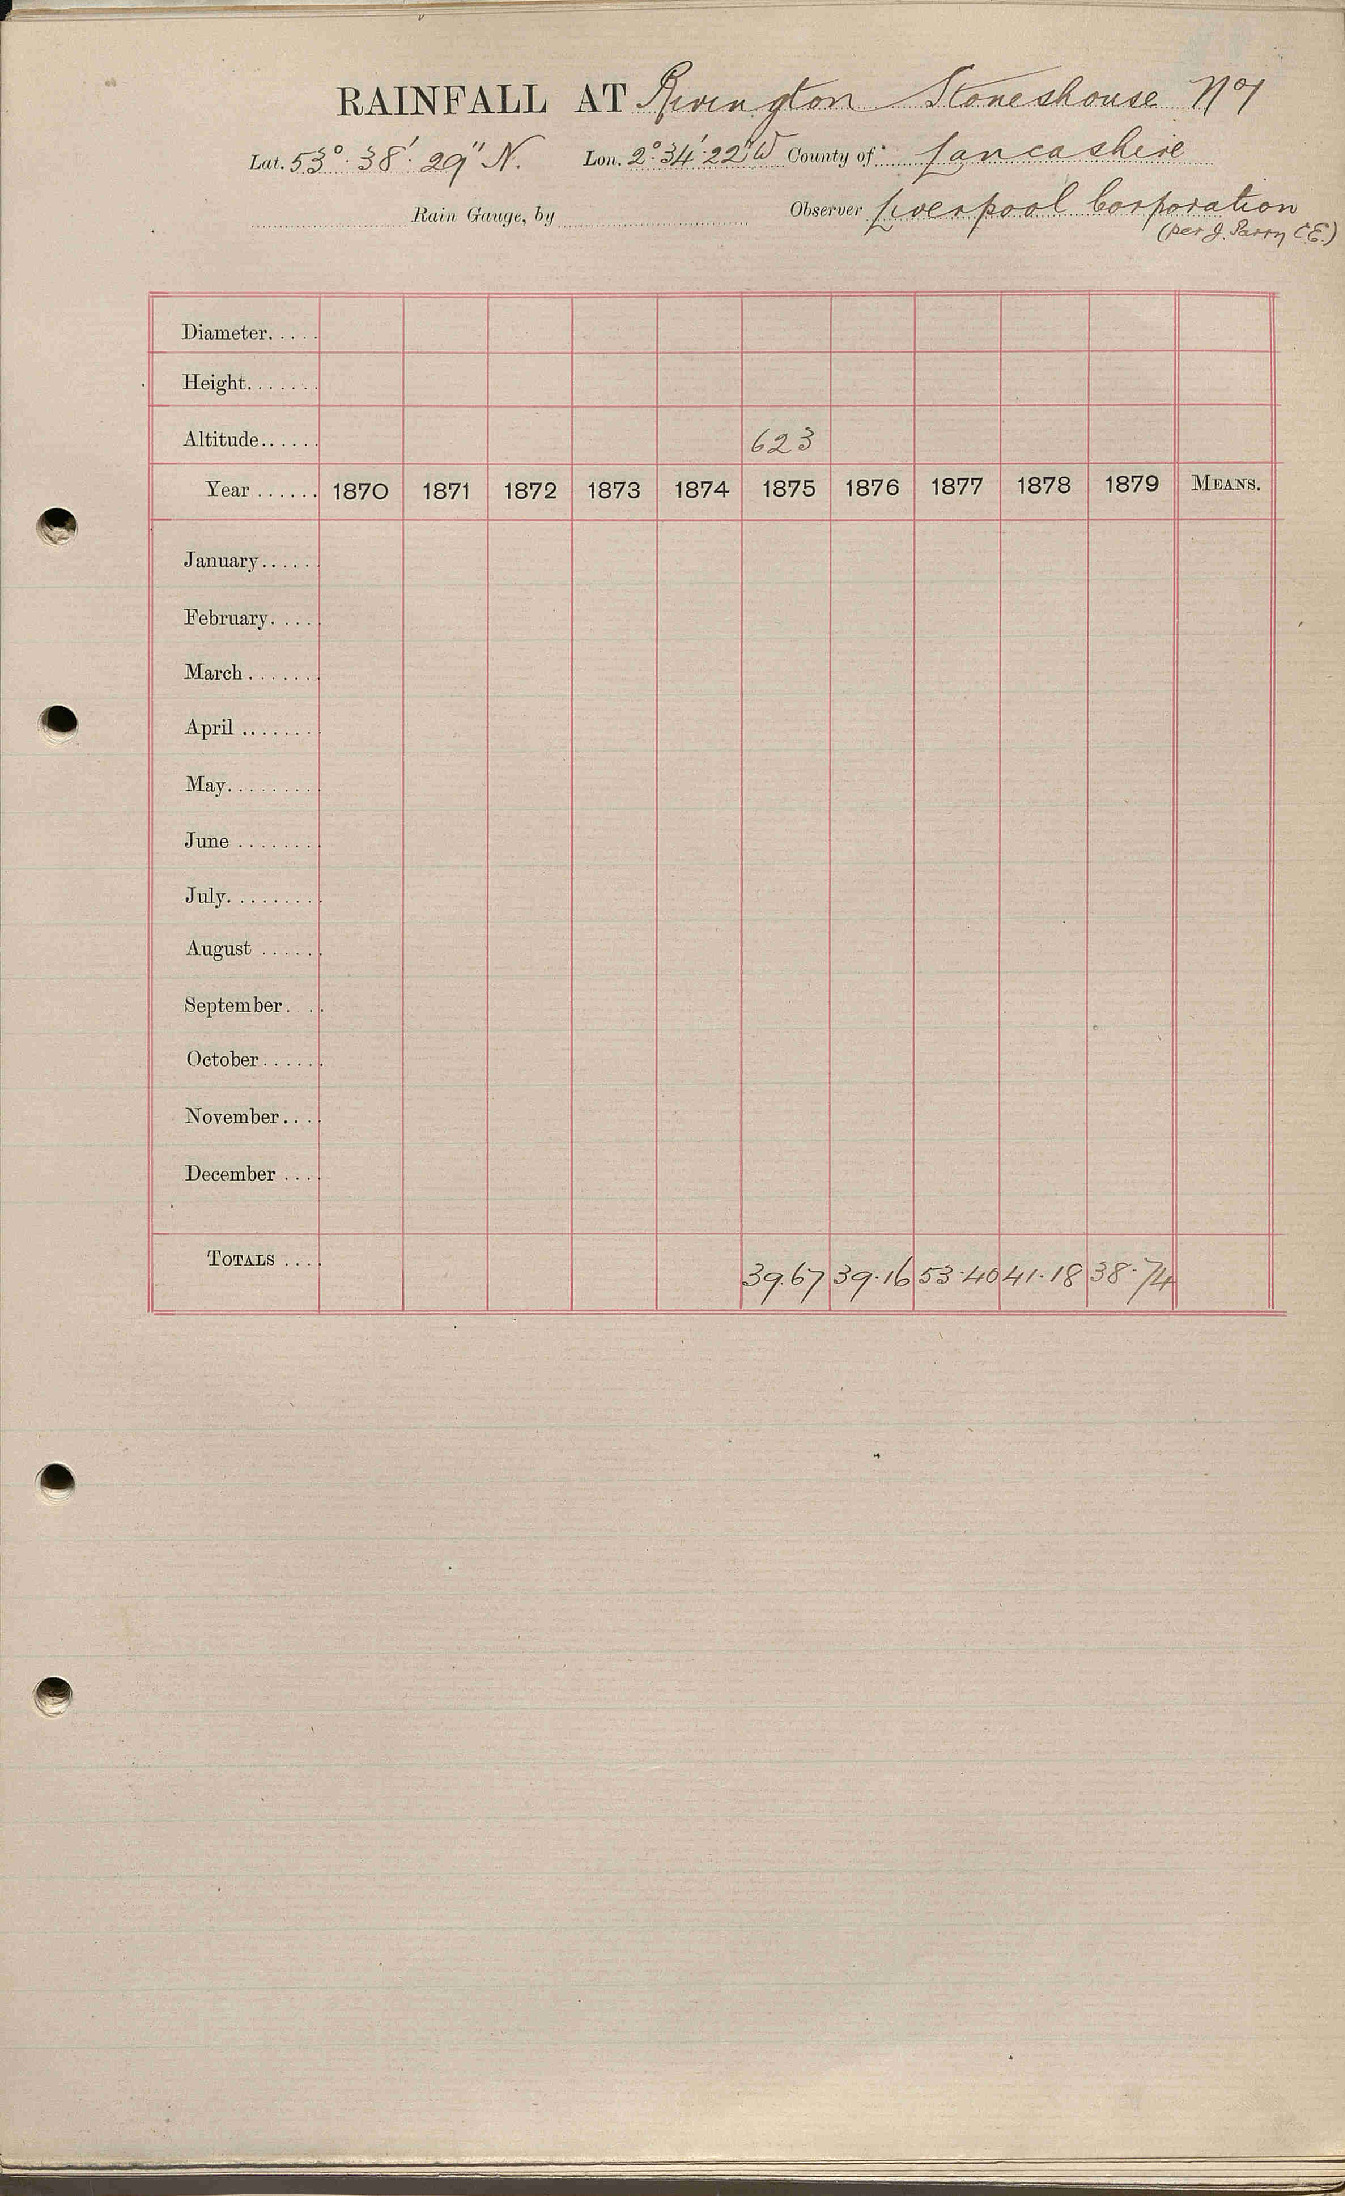 RAINFALL AT Rivington Stoneshouse No 1
Lat. 53° 38' 29" N. Lon. 2° 34' 22" W County of Lancashire
Rain Gauge, by Observer Liverpool Corporation
(per J. Parry C.E.)
Diameter.....
Height.......
Altitude...... 623
Year ...... 1870 1871 1872 1873 1874 1875 1876 1877 1878 1879 MEANS.
January.....
February....
March.......
April.......
May........
June.......
July........
August......
September...
October......
November....
December....
TOTALS.... 39.67 39.16 53.40 41.18 38.74